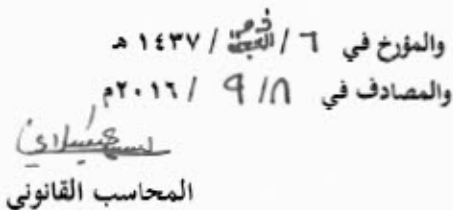 والمؤرخ في ٦ / ذي الحجة / ١٤٣٧ هـ
والمصادف في ٩/٨ / ٢٠١٦م
المحاسب القانوني